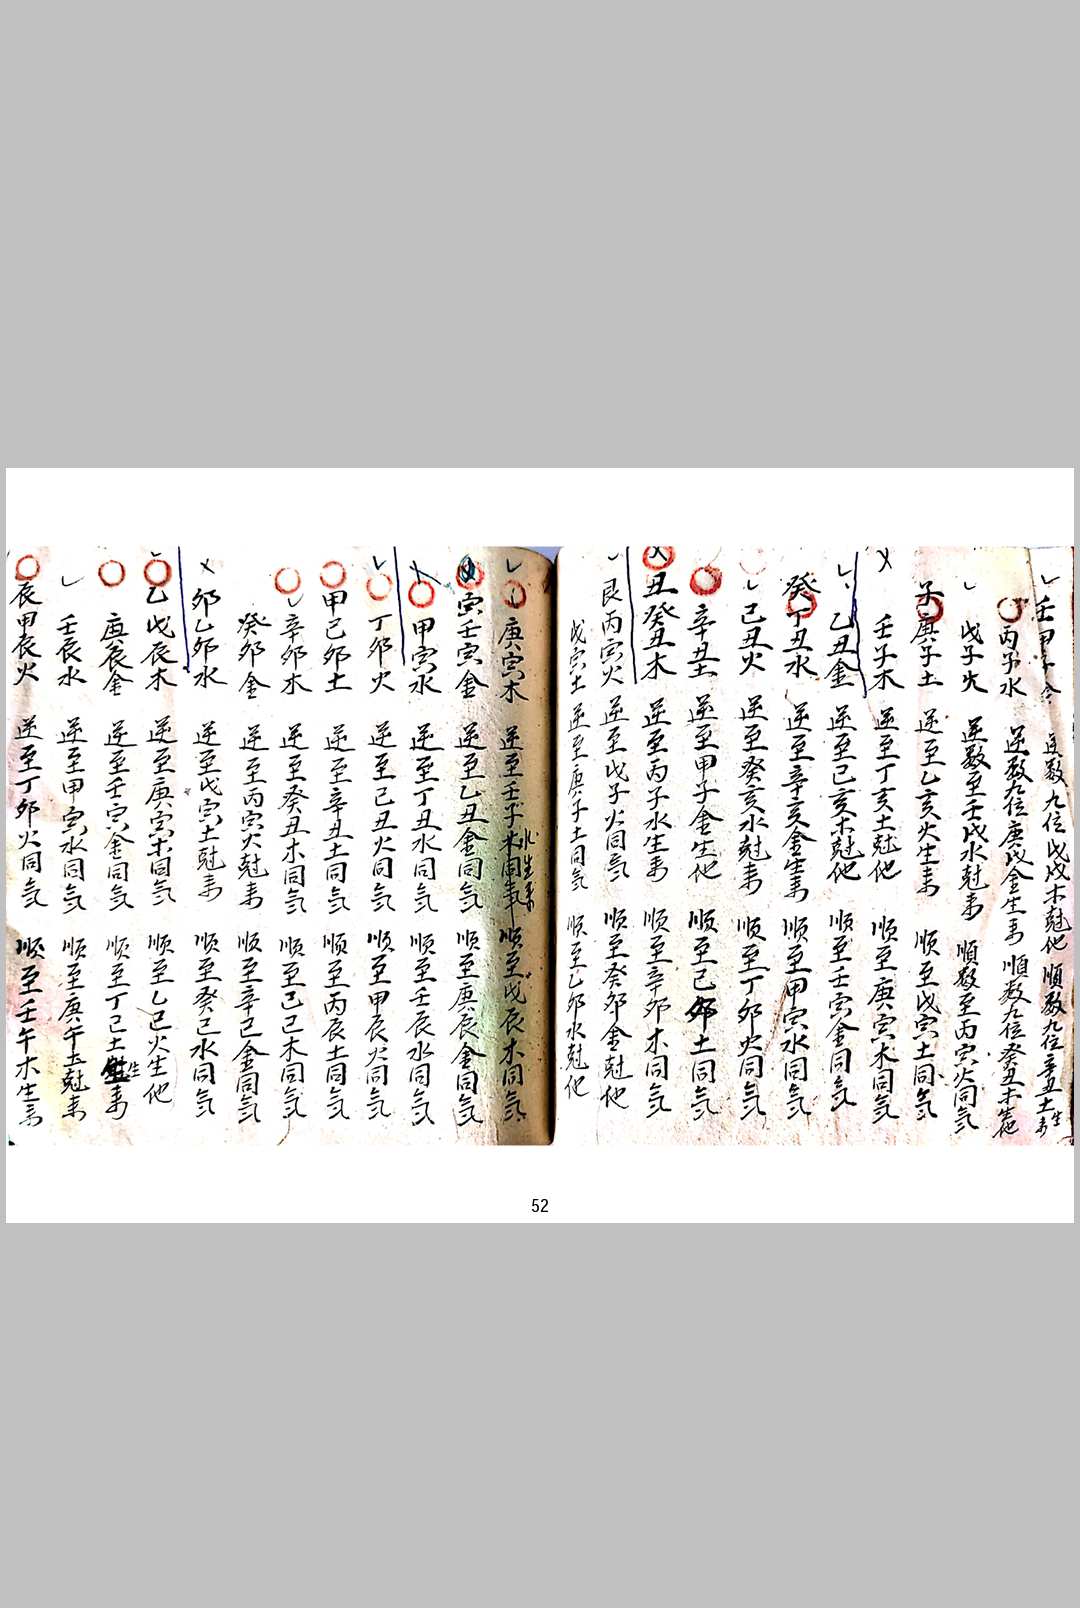 壬甲子金 逆数九位戊戌木尅他 順数九位辛丑土生来
丙子水 逆数九位庚戌金生来 順数九位癸丑木生他
戊子火 逆数至壬戌水尅来 順数至丙寅火同気
子庚子土 逆至乙亥火生来 順至戊寅土同気
壬子木 逆至丁亥土尅他 順至庚寅木同気
乙丑金 逆至己亥木尅他 順至壬寅金同気
癸丁丑水 逆至辛亥金生来 順至甲寅水同気
己丑火 逆至癸亥水尅来 順至丁卯火同気
辛丑土 逆至甲子金生他 順至己卯土同気
丑癸丑木 逆至丙子水生来 順至辛卯木同気
艮丙寅火 逆至戊子火同気 順至癸卯金尅他
戊寅土 逆至庚子土同気 順至乙卯水尅他
庚寅木 逆至壬子木同気 水生来 順至戊辰木同気
寅壬寅金 逆至乙丑金同気 順至庚辰金同気
甲寅水 逆至丁丑水同気 順至壬辰水同気
丁卯火 逆至己丑火同気 順至甲辰火同気
甲己卯土 逆至辛丑土同気 順至丙辰土同気
辛卯木 逆至癸丑木同気 順至己巳木同気
癸卯金 逆至丙寅火尅来 順至辛巳金同気
卯乙卯水 逆至戊寅土尅来 順至癸巳水同気
乙戊辰木 逆至庚寅木同気 順至乙巳火生他
庚辰金 逆至壬寅金同気 順至丁巳土生来
壬辰水 逆至甲寅水同気 順至庚午土尅来
辰甲辰火 逆至丁卯火同気 順至壬午木生来
52